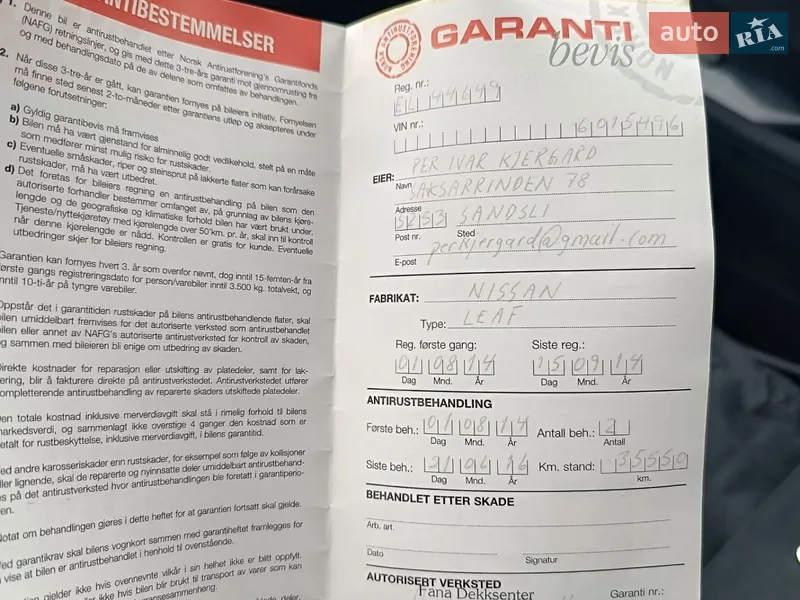 ANTIBESTEMMELSER
1. Denne bil er antirustbehandlet etter Norsk Antirustforening's Garantifonds
(NAFG) retningslinjer, og gis med dette 3-tre-års garanti mot gjennomrusting fra
og med behandlingsdato på de av delene som omfattes av behandlingen.
2. Når disse 3-tre-år er gått, kan garantien fornyes på bileiers initiativ. Fornyelsen
må finne sted senest 2-to-måneder etter garantiens utløp og aksepteres under
følgene forutsetninger:
a) Gyldig garantibevis må framvises
b) Bilen må ha vært gjenstand for alminnelig godt vedlikehold, stelt på en måte
som medfører minst mulig risiko for rustskader.
c) Eventuelle småskader, riper og steinsprut på lakkerte flater som kan forårsake
rustskader, må ha vært utbedret.
d) Det foretas for bileiers regning en antirustbehandling på bilen som den
autoriserte forhandler bestemmer omfanget av, på grunnlag av bilens kjøre-
lengde og de geografiske og klimatiske forhold bilen har vært brukt under.
Tjeneste/nyttekjøretøy med kjørelengde over 50'km. pr. år, skal inn til kontroll
når denne kjørelengde er nådd. Kontrollen er gratis for kunde. Eventuelle
utbedringer skjer for bileiers regning.
Garantien kan fornyes hvert 3. år som ovenfor nevnt, dog inntil 15-femten-år fra
første gangs registreringsdato for person/varebiler inntil 3.500 kg. totalvekt, og
inntil 10-ti-år på tyngre varebiler.
Oppstår det i garantitiden rustskader på bilens antirustbehandlende flater, skal
bilen umiddelbart fremvises for det autoriserte verksted som antirustbehandlet
bilen eller annet av NAFG's autoriserte antirustverksted for kontroll av skaden,
og sammen med bileieren bli enige om utbedring av skaden.
Direkte kostnader for reparasjon eller utskifting av platedeler, samt for lak-
ering, blir å fakturere direkte på antirustverkstedet. Antirustverkstedet utfører
kompletterende antirustbehandling av reparerte skaders utskiftede platedeler.
Den totale kostnad inklusive merverdiavgift skal stå i rimelig forhold til bilens
markedsverdi, og sammenlagt ikke overstige 4 ganger den kostnad som er
betalt for rustbeskyttelse, inklusive merverdiavgift, i bilens garantitid.
Ved andre karosseriskader enn rustskader, for eksempel som følge av kollisjoner
eller lignende, skal de reparerte og nyinnsatte deler umiddelbart antirustbehand-
es på det antirustverksted hvor antirustbehandlingen ble foretatt i garantiperio-
en.
Notat om behandlingen gjøres i dette heftet for at garantien fortsatt skal gjelde.
Ved garantikrav skal bilens vognkort sammen med garantiheftet framlegges for
å vise at bilen er antirustbehandlet i henhold til ovenstående.
gjelder ikke hvis ovennevnte vilkår i sin helhet ikke er blitt oppfylt.
ikke hvis bilen blir brukt til transport av varer som kan
NORSK ANTIRUSTFORENING
GARANTI
bevis
auto RIA
.com
Reg. nr.: EL 44499
VIN nr.: 6915496
EIER: PER IVAR KJERGARD
Navn
SAKSARRINDEN 78
Adresse
5253 SANDSLI
Post nr. Sted
perkjergard@gmail.com
E-post
FABRIKAT: NISSAN
Type: LEAF
Reg. første gang: Siste reg.:
01 08 14 15 09 14
Dag Mnd. År Dag Mnd. År
ANTIRUSTBEHANDLING
Første beh.: 01 08 14 Antall beh.: 2
Dag Mnd. År Antall
Siste beh.: 21 04 16 Km. stand: 35550
Dag Mnd. År km.
BEHANDLET ETTER SKADE
Arb. art.
Dato Signatur
AUTORISERT VERKSTED
Fana Dekksenter Garanti nr.: